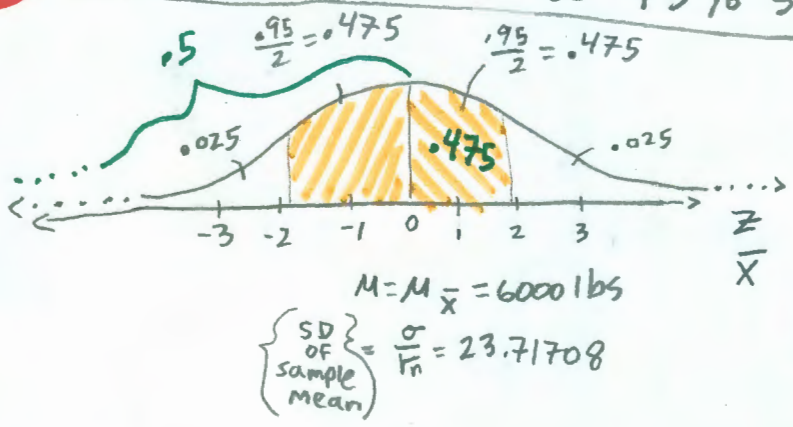 .5
.95/2 = .475
.95/2 = .475
.025
.475
.025
-3 -2 -1 0 1 2 3
Z
X̄
μ = μ x̄ = 6000 lbs
{SD OF sample mean} = σ/√n = 23.71708